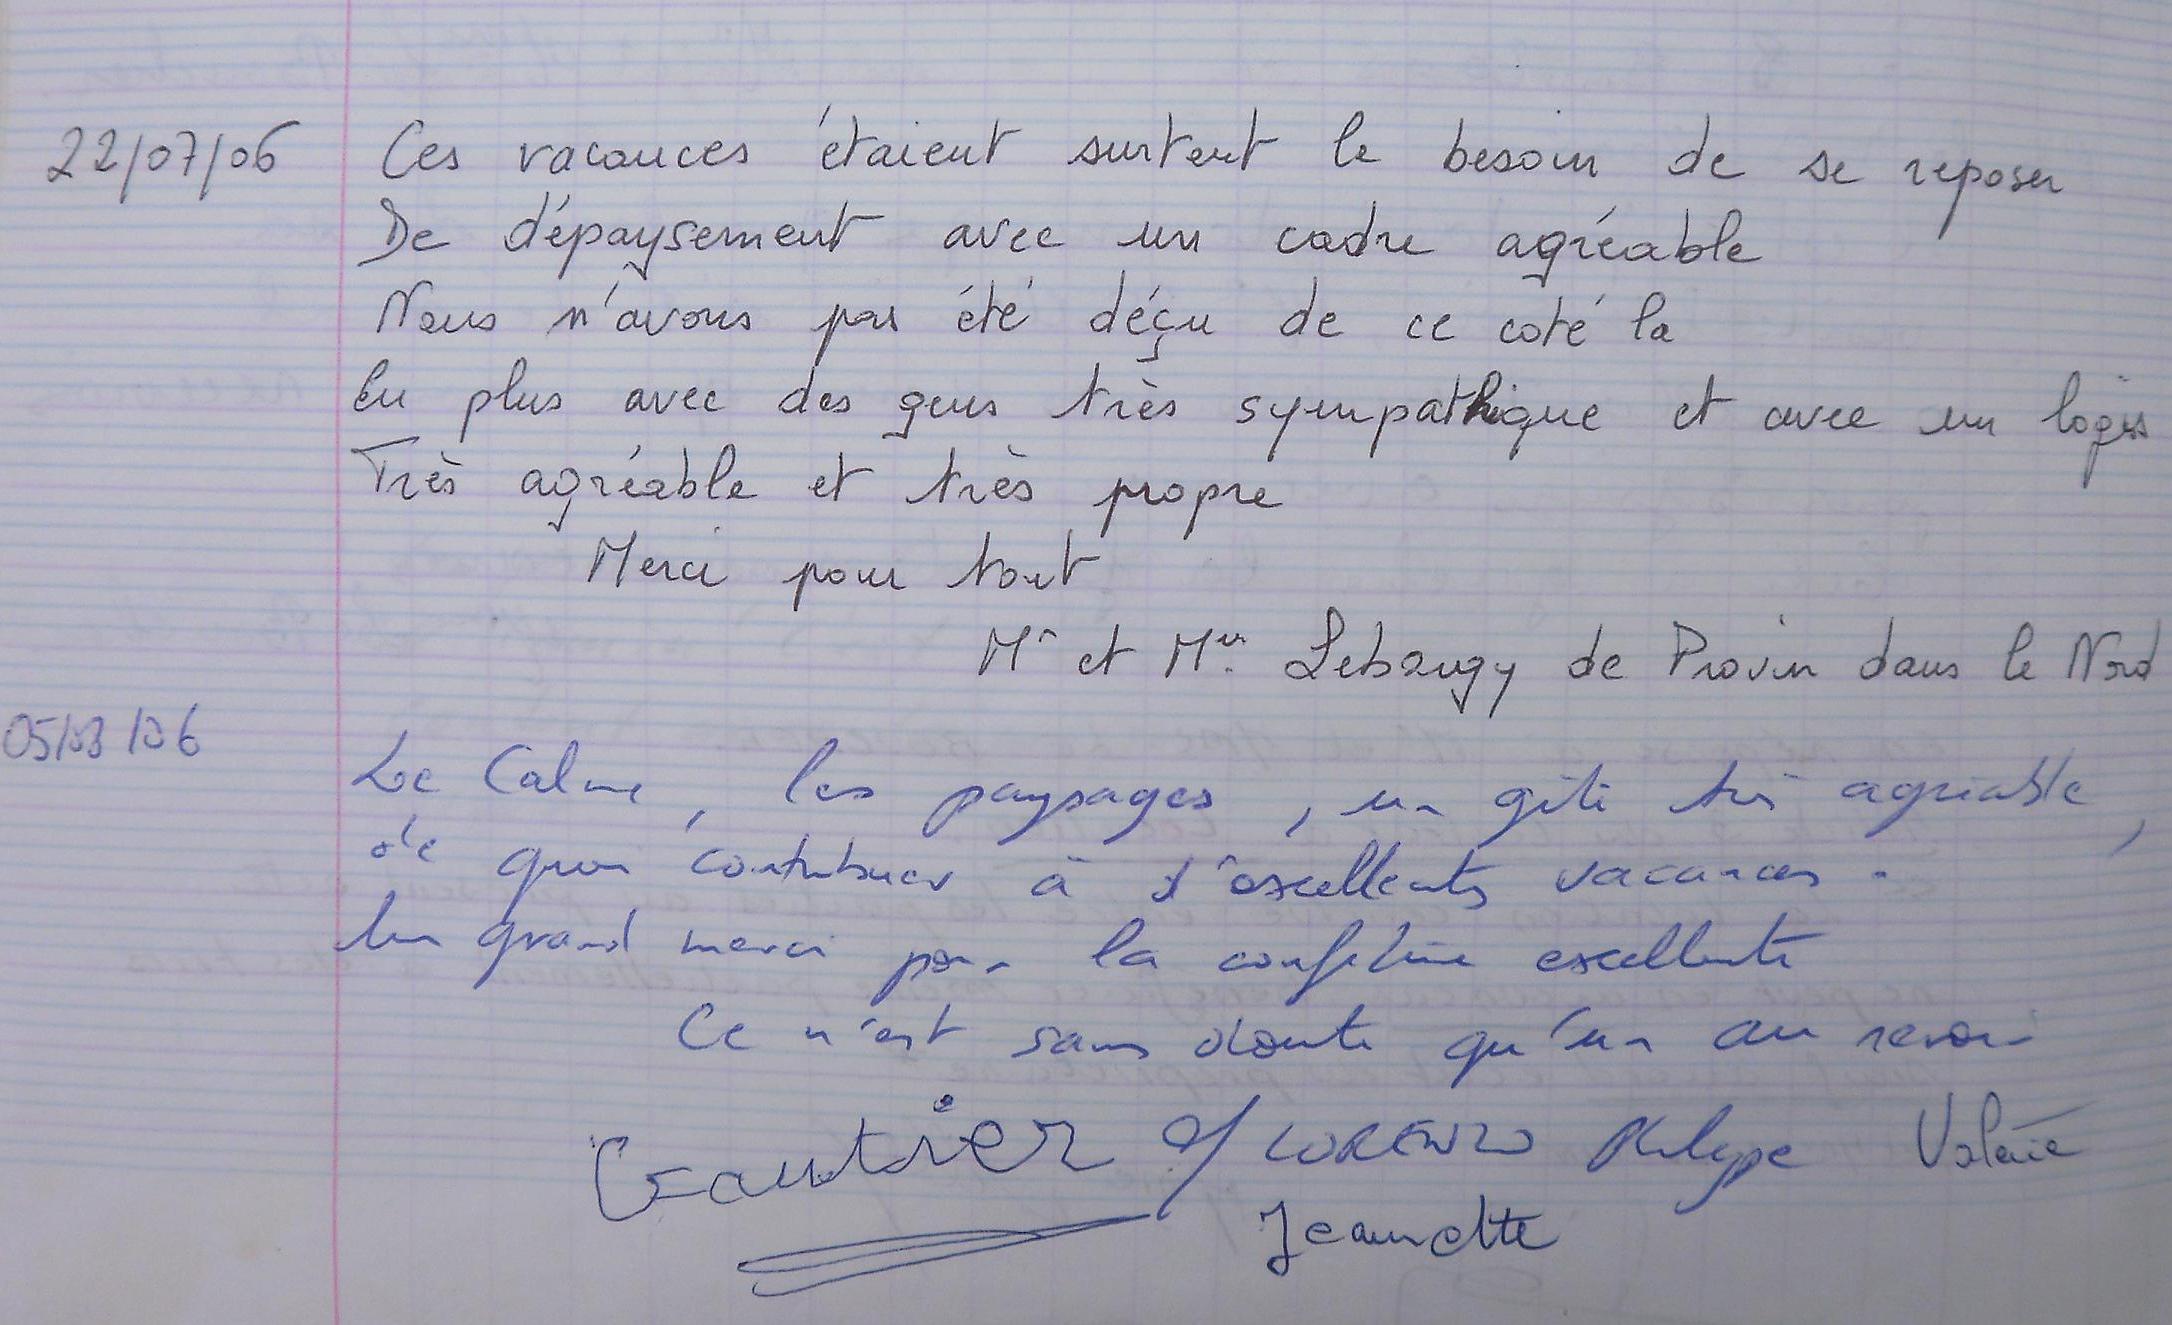 22/07/06 Ces vacances étaient surtout le besoin de se reposer
De dépaysement avec un cadre agréable
Nous n'avons pas été déçu de ce coté la
En plus avec des gens très sympathique et avec un logis
Très agréable et très propre
Merci pour tout
Mr et Me de Provin dans le Nord
05/08/06
Le Calme, les paysages, un gite très agréable,
de quoi contribuer à d'excellents vacances.
Un grand merci pour la confiture excellente
Ce n'est sans doute qu'un au revoir
Gautier LORENZO Philippe Valérie
Jeannette